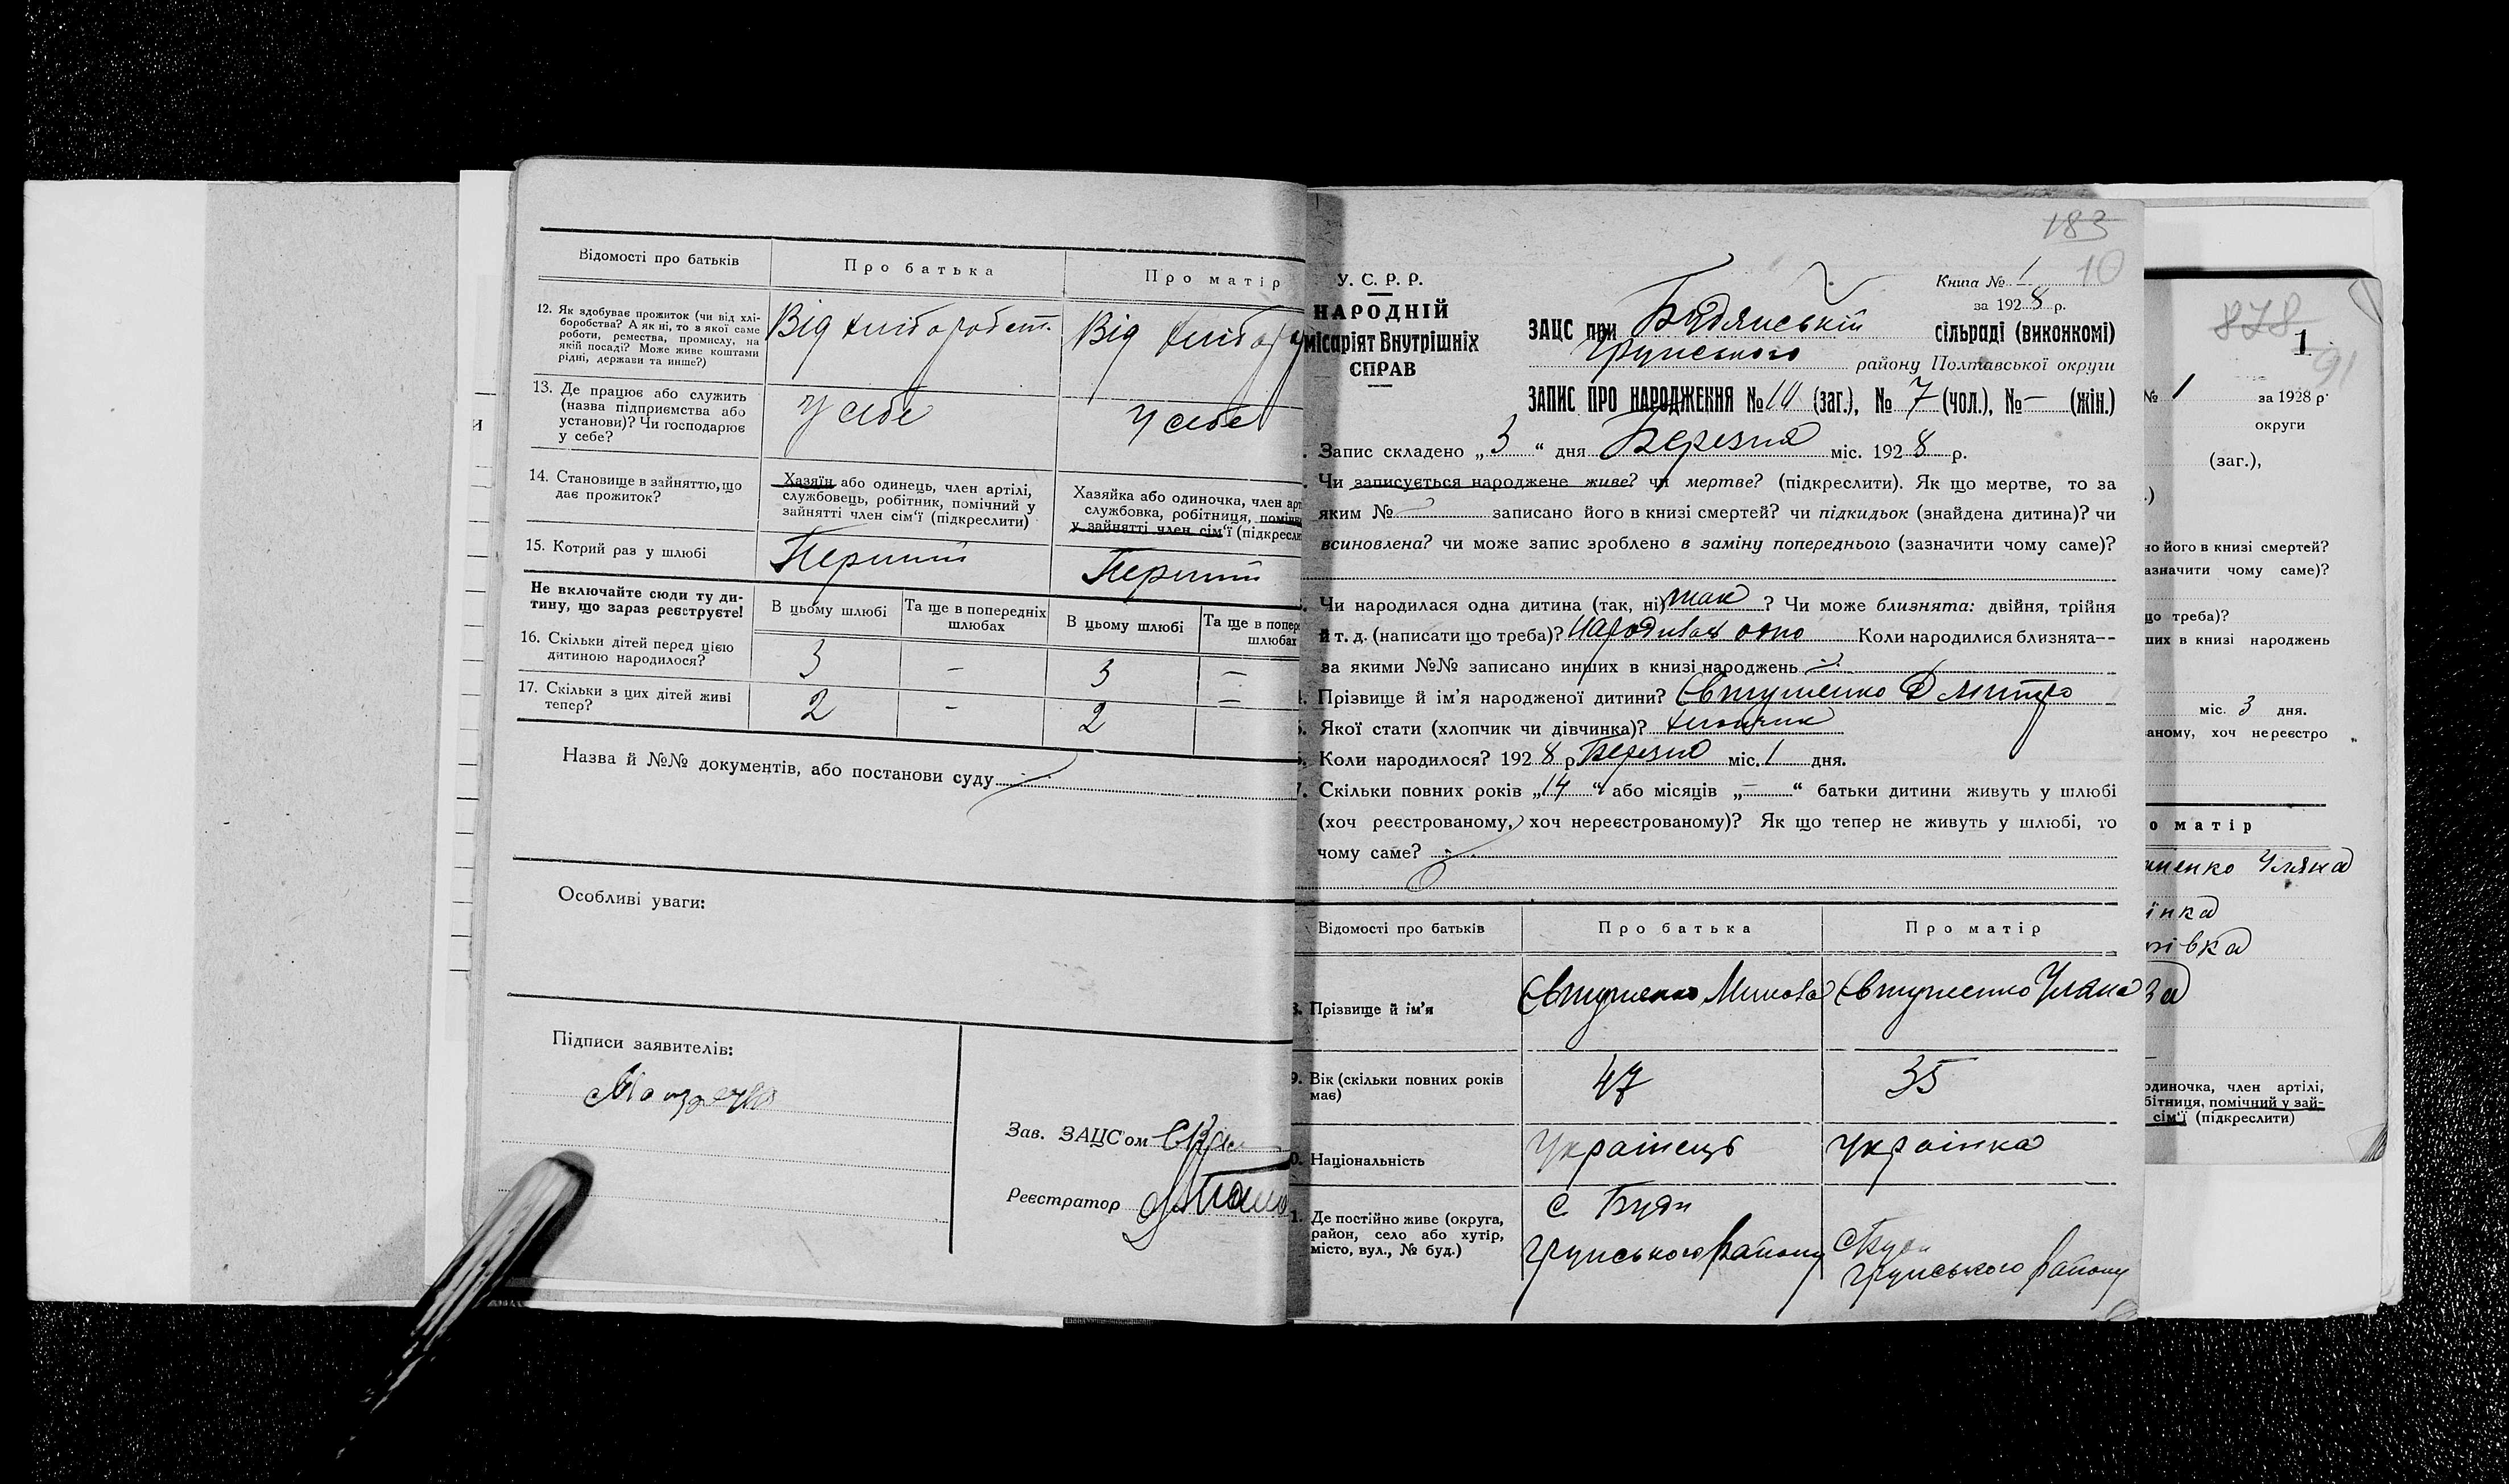 Відомості про батьків
Про батька
Про матір
12. Як здобуває прожиток (чи від хлі-
боробства? А як ні, то з якої саме
роботи, ремества, промислу, на
якій посаді? Може живе коштами
рідні, держави та инше?)
Від хліборобст.
Від хлібор
13. Де працює або служить
(назва підприємства або
установи)? Чи господарює
у себе?
У себе
У себе
14. Становище в зайняттю, що
дає прожиток?
Хазяїн або одинець, член артілі,
службовець, робітник, помічний у
зайнятті член сім'ї (підкреслити)
Хазяйка або одиночка, член арт
службовка, робітниця, поміч
у зайнятті член сім'ї (підкресли
15. Котрий раз у шлюбі
Перший
Перший
Не включайте сюди ту ди-
тину, що зараз реєструєте!
В цьому шлюбі
Та ще в попередніх
шлюбах
В цьому шлюбі
Та ще в попер
шлюбах
16. Скільки дітей перед цією
дитиною народилося?
3 – 3 –
17. Скільки з цих дітей живі
тепер?
2 – 2 –
Назва й №№ документів, або постанови суду
Особливі уваги:
Підписи заявителів:
Зав. ЗАЦС'ом
Реєстратор
183
10
У. С. Р. Р.
НАРОДНІЙ
місаріят Внутрішніх
СПРАВ
Книга № 1
за 1928 р.
ЗАЦС при Будянській сільраді (виконкомі)
Грунського району Полтавської округи
ЗАПИС ПРО НАРОДЖЕННЯ № 10 (заг.), № 7 (чол.), № – (жін.)
Запис складено „3“ дня Березня міс. 1928 р.
Чи записується народжене живе? чи мертве? (підкреслити). Як що мертве, то за
яким № записано його в книзі смертей? чи підкидьок (знайдена дитина)? чи
всиновлена? чи може запис зроблено в заміну попереднього (зазначити чому саме)?
Чи народилася одна дитина (так, ні) так? Чи може близнята: двійня, трійня
й т. д. (написати що треба)? народилося одно Коли народилися близнята--
за якими №№ записано инших в книзі народжень
Прізвище й ім'я народженої дитини? Євтушенко Дмитро
Якої стати (хлопчик чи дівчинка)? хлопчик
Коли народилося? 1928 р. Березня міс. 1 дня.
7. Скільки повних років „14“ або місяців „–“ батьки дитини живуть у шлюбі
(хоч реєстрованому, хоч нереєстрованому)? Як що тепер не живуть у шлюбі, то
чому саме?
Відомості про батьків
Про батька
Про матір
8. Прізвище й ім'я
Євтушенко Микола
Євтушенко Уляна
9. Вік (скільки повних років
має)
47
35
0. Національність
Українець
Українка
1. Де постійно живе (округа,
район, село або хутір,
місто, вул., № буд.)
с Буди
Грунського району
с Буди
Грунського району
878
1
91
№ 1 за 1928 р.
округи
(заг.),
но його в книзі смертей?
азначити чому саме)?
що треба)?
ших в книзі народжень
міс. 3 дня.
ваному, хоч нереєстро
о матір
Уляна
одиночка, член артілі,
бітниця, помічний у зай-
сім'ї (підкреслити)